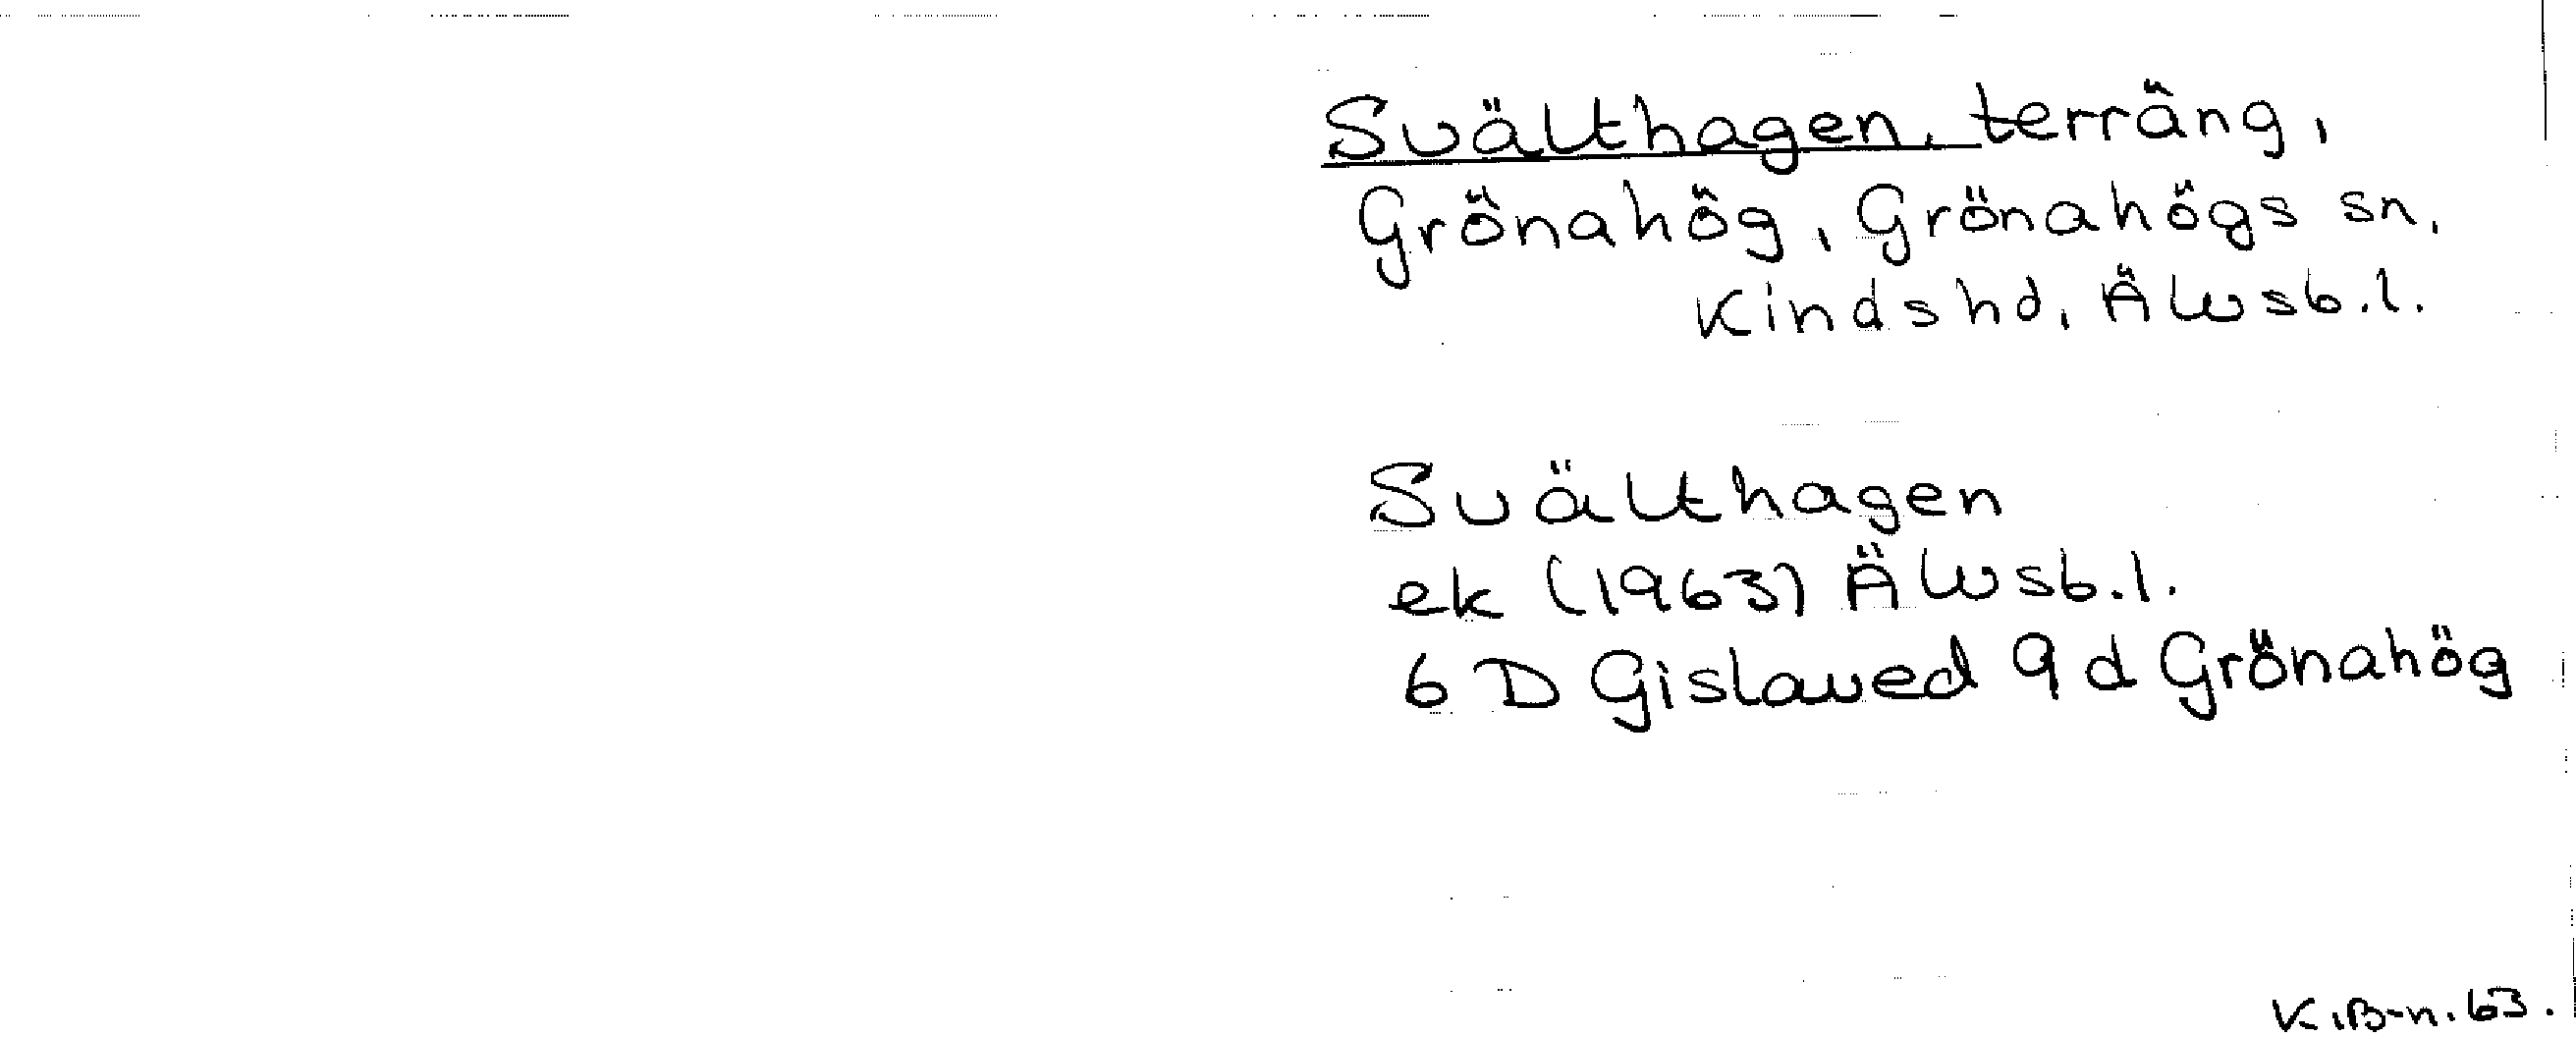 Svälthagen, terräng,
Grönahög, Grönahögs sn,
Kinds hd, Älvsb.l.
Svälthagen
ek (1963) Älvsb.l.
6 D Gislaved 9 d Grönahög
K.B-n. 63.